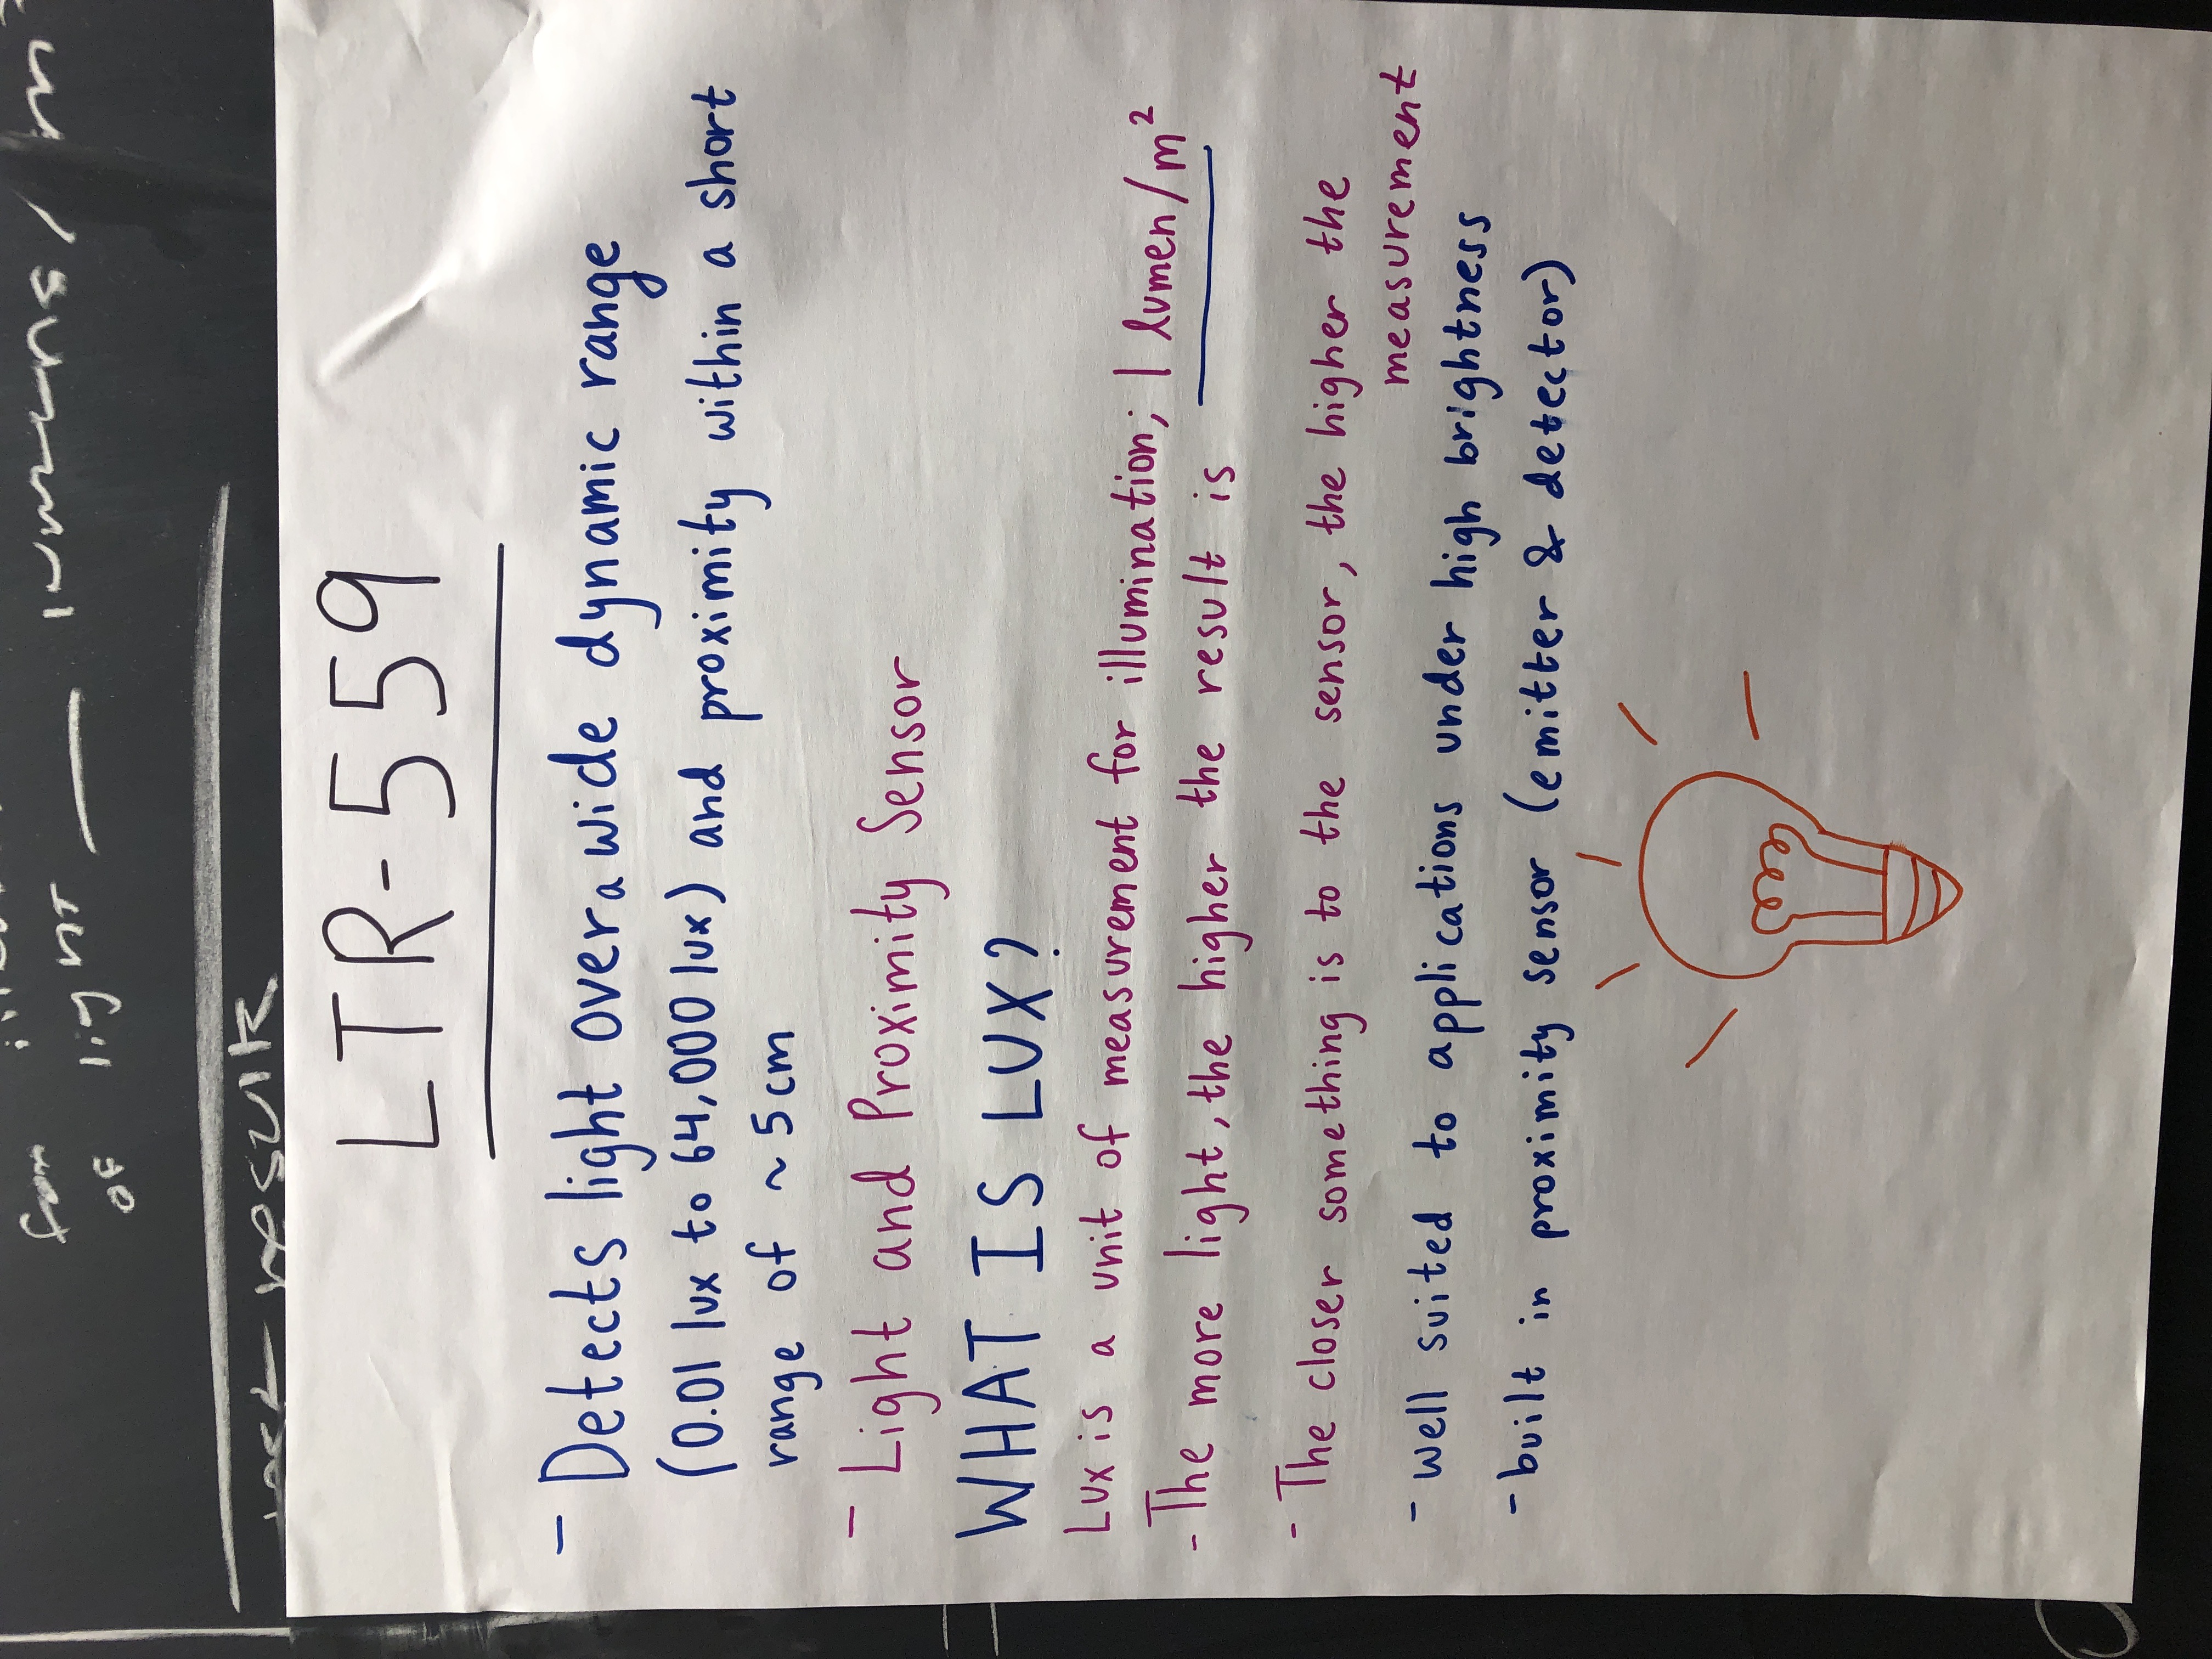 for
of light — lumens/m
result
LTR-559
- Detects light over a wide dynamic range
(0.01 lux to 64,000 lux) and proximity within a short
range of ~ 5cm
- Light and Proximity Sensor
WHAT IS LUX?
Lux is a unit of measurement for illumination; 1 lumen/m²
- The more light, the higher the result is
- The closer something is to the sensor, the higher the
measurement
- well suited to applications under high brightness
- built in proximity sensor (emitter & detector)